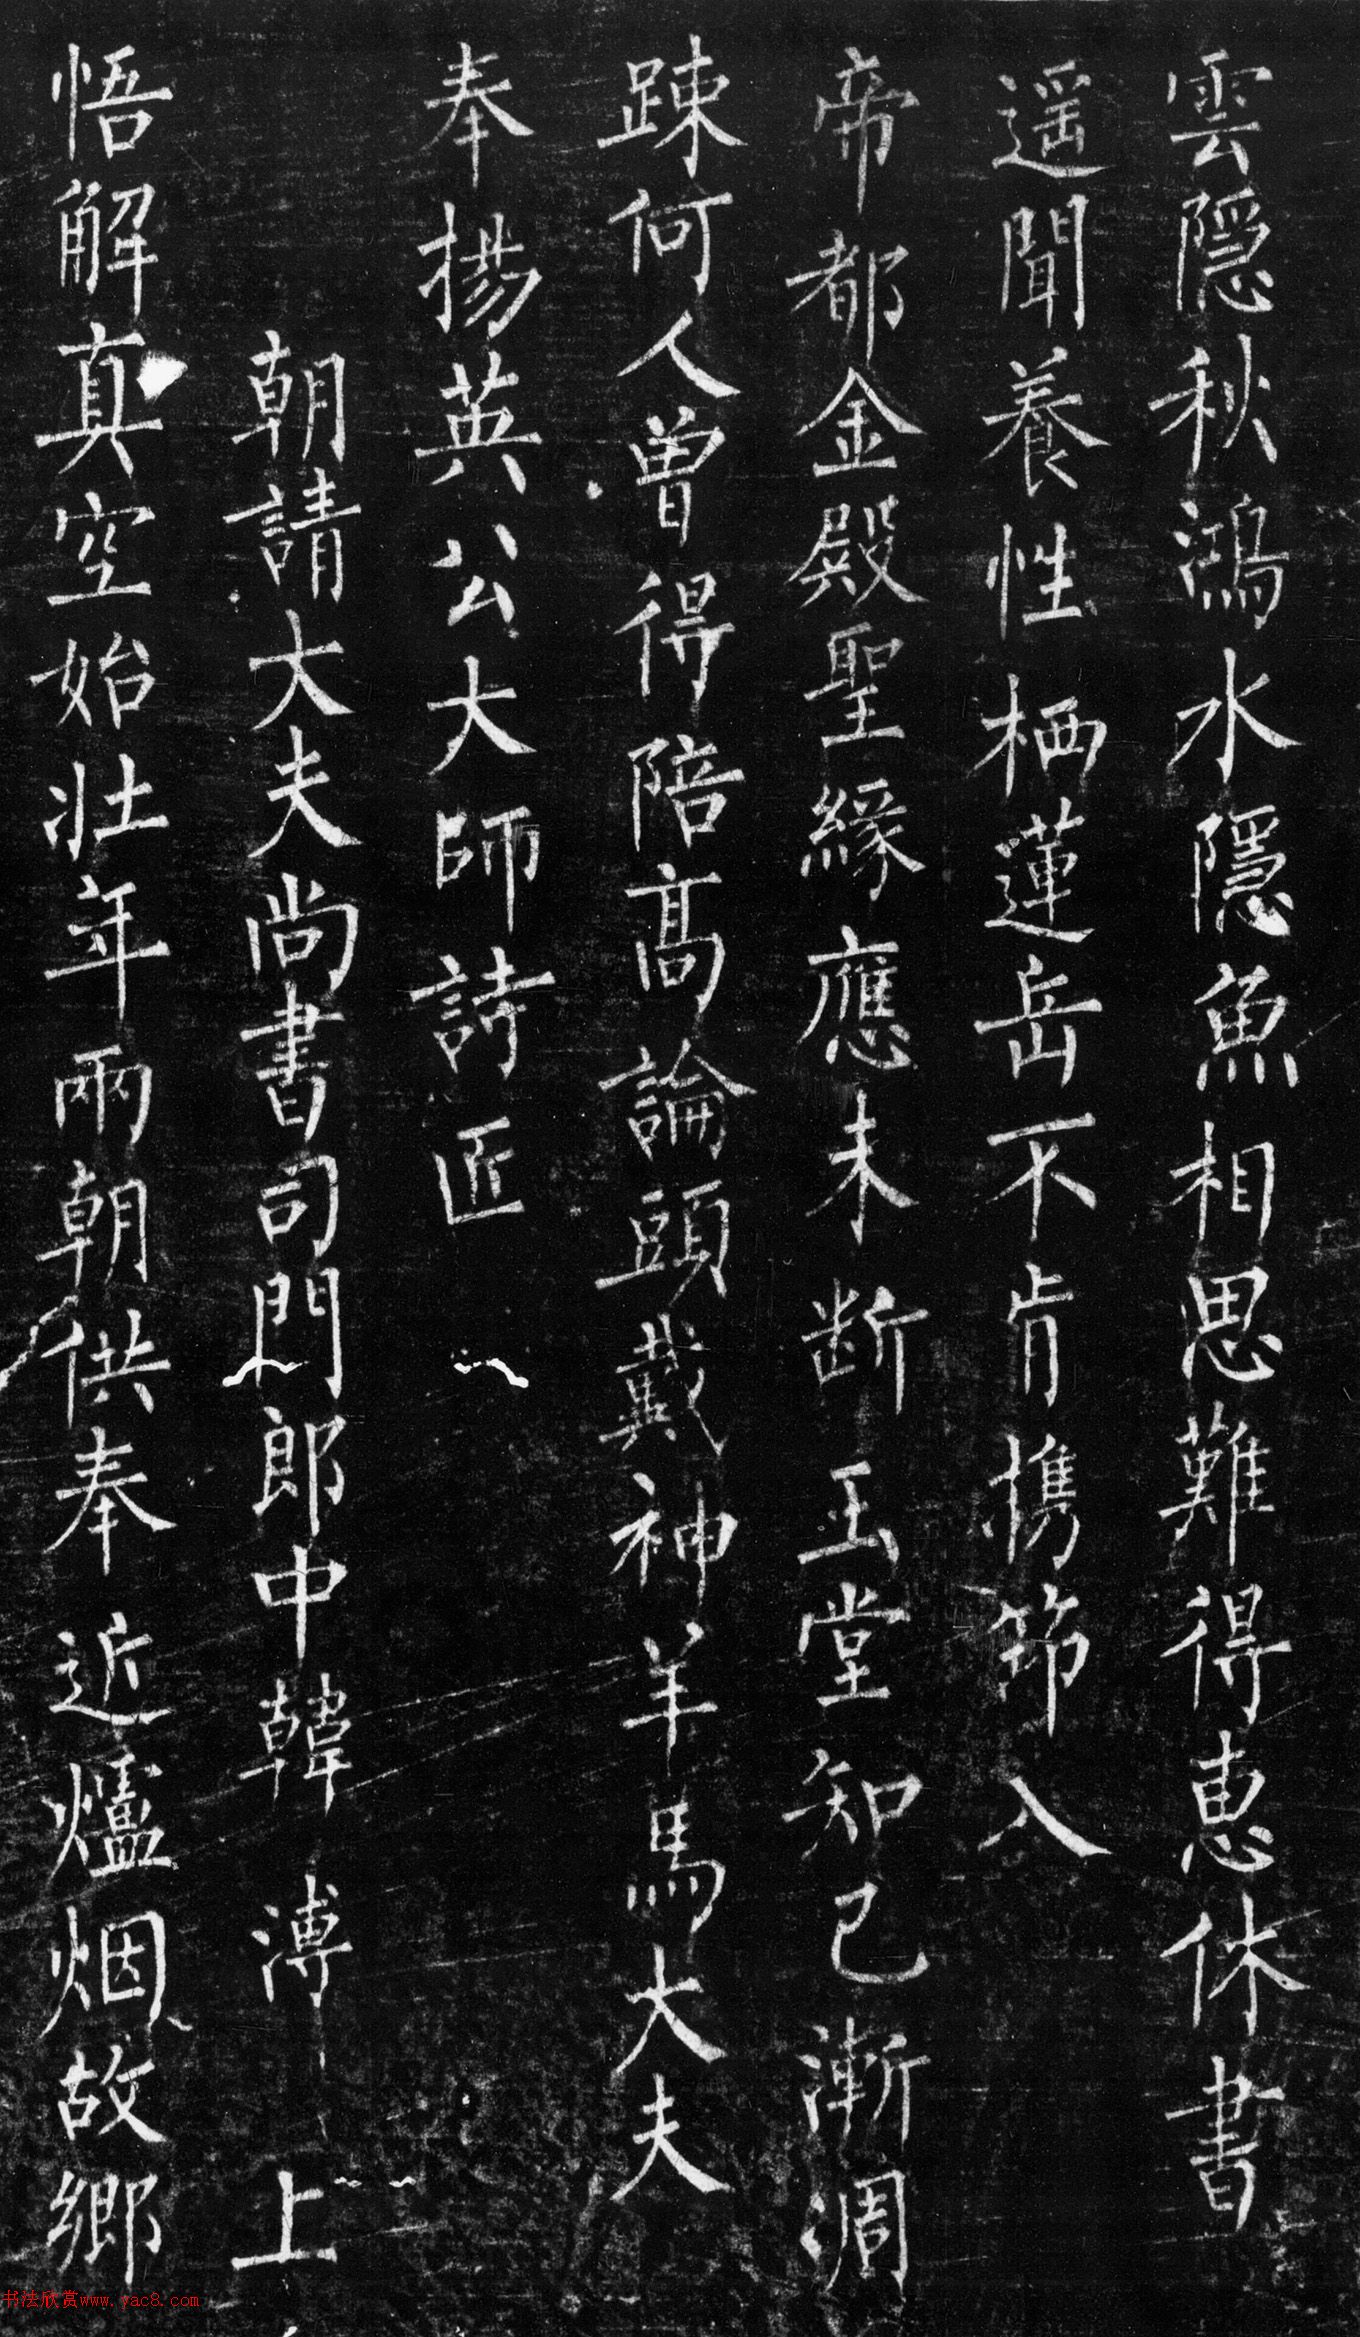 雲隱秋鴻水隱魚相思難得惠休書
遥聞養性栖蓮岳不肯携筇入
帝都金殿聖緣應未断玉堂知己漸凋
踈何人曾得陪高論頭戴神羊馬大夫
奉揚英公大師詩匠
朝請大夫尚書司門郎中韓溥上
悟解真空始壮年兩朝供奉近爐烟故鄉
书法欣赏www.yac8.com